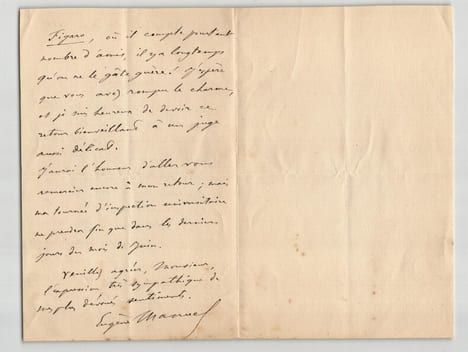 Figaro, où il compte pourtant
nombre d'amis, il y a longtemps
qu'on ne le gâte guère ! J'espère
que vous avez rompu le charme,
et je suis heureux de devoir ce
retour bienveillant à un juge
aussi délicat.
J'aurai l'honneur d'aller vous
remercier encore à mon retour ; mais
ma tournée d'inspection universitaire
ne prendra fin que dans les derniers
jours du mois de Juin.
Veuillez agréer, Monsieur,
l'expression très sympathique de
mes plus dévoués sentiments.
Eugène Manuel